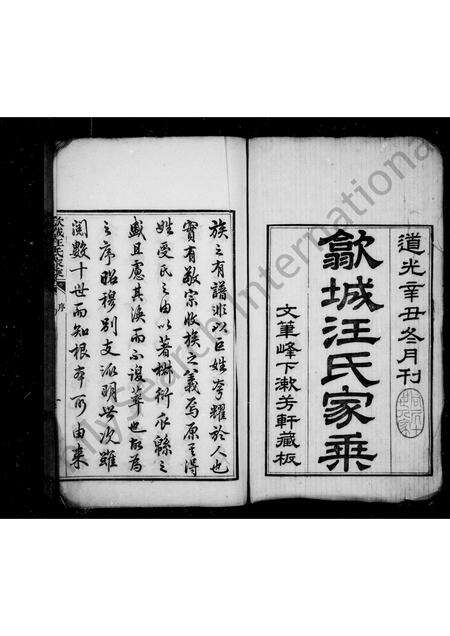 道光辛丑冬月刊
歙城汪氏家乘
文筆峰下漱芳軒藏板
族之有譜非以巨姓夸耀於人也
實有敬宗收族之義焉原其得
姓受氏之由以著樹衍衣緜之
盛且慮其渙而不復萃也故為
之序昭穆別支派明世次雖
閱數十世而知根本所由來
歙城汪氏家乘
序
MySearch International